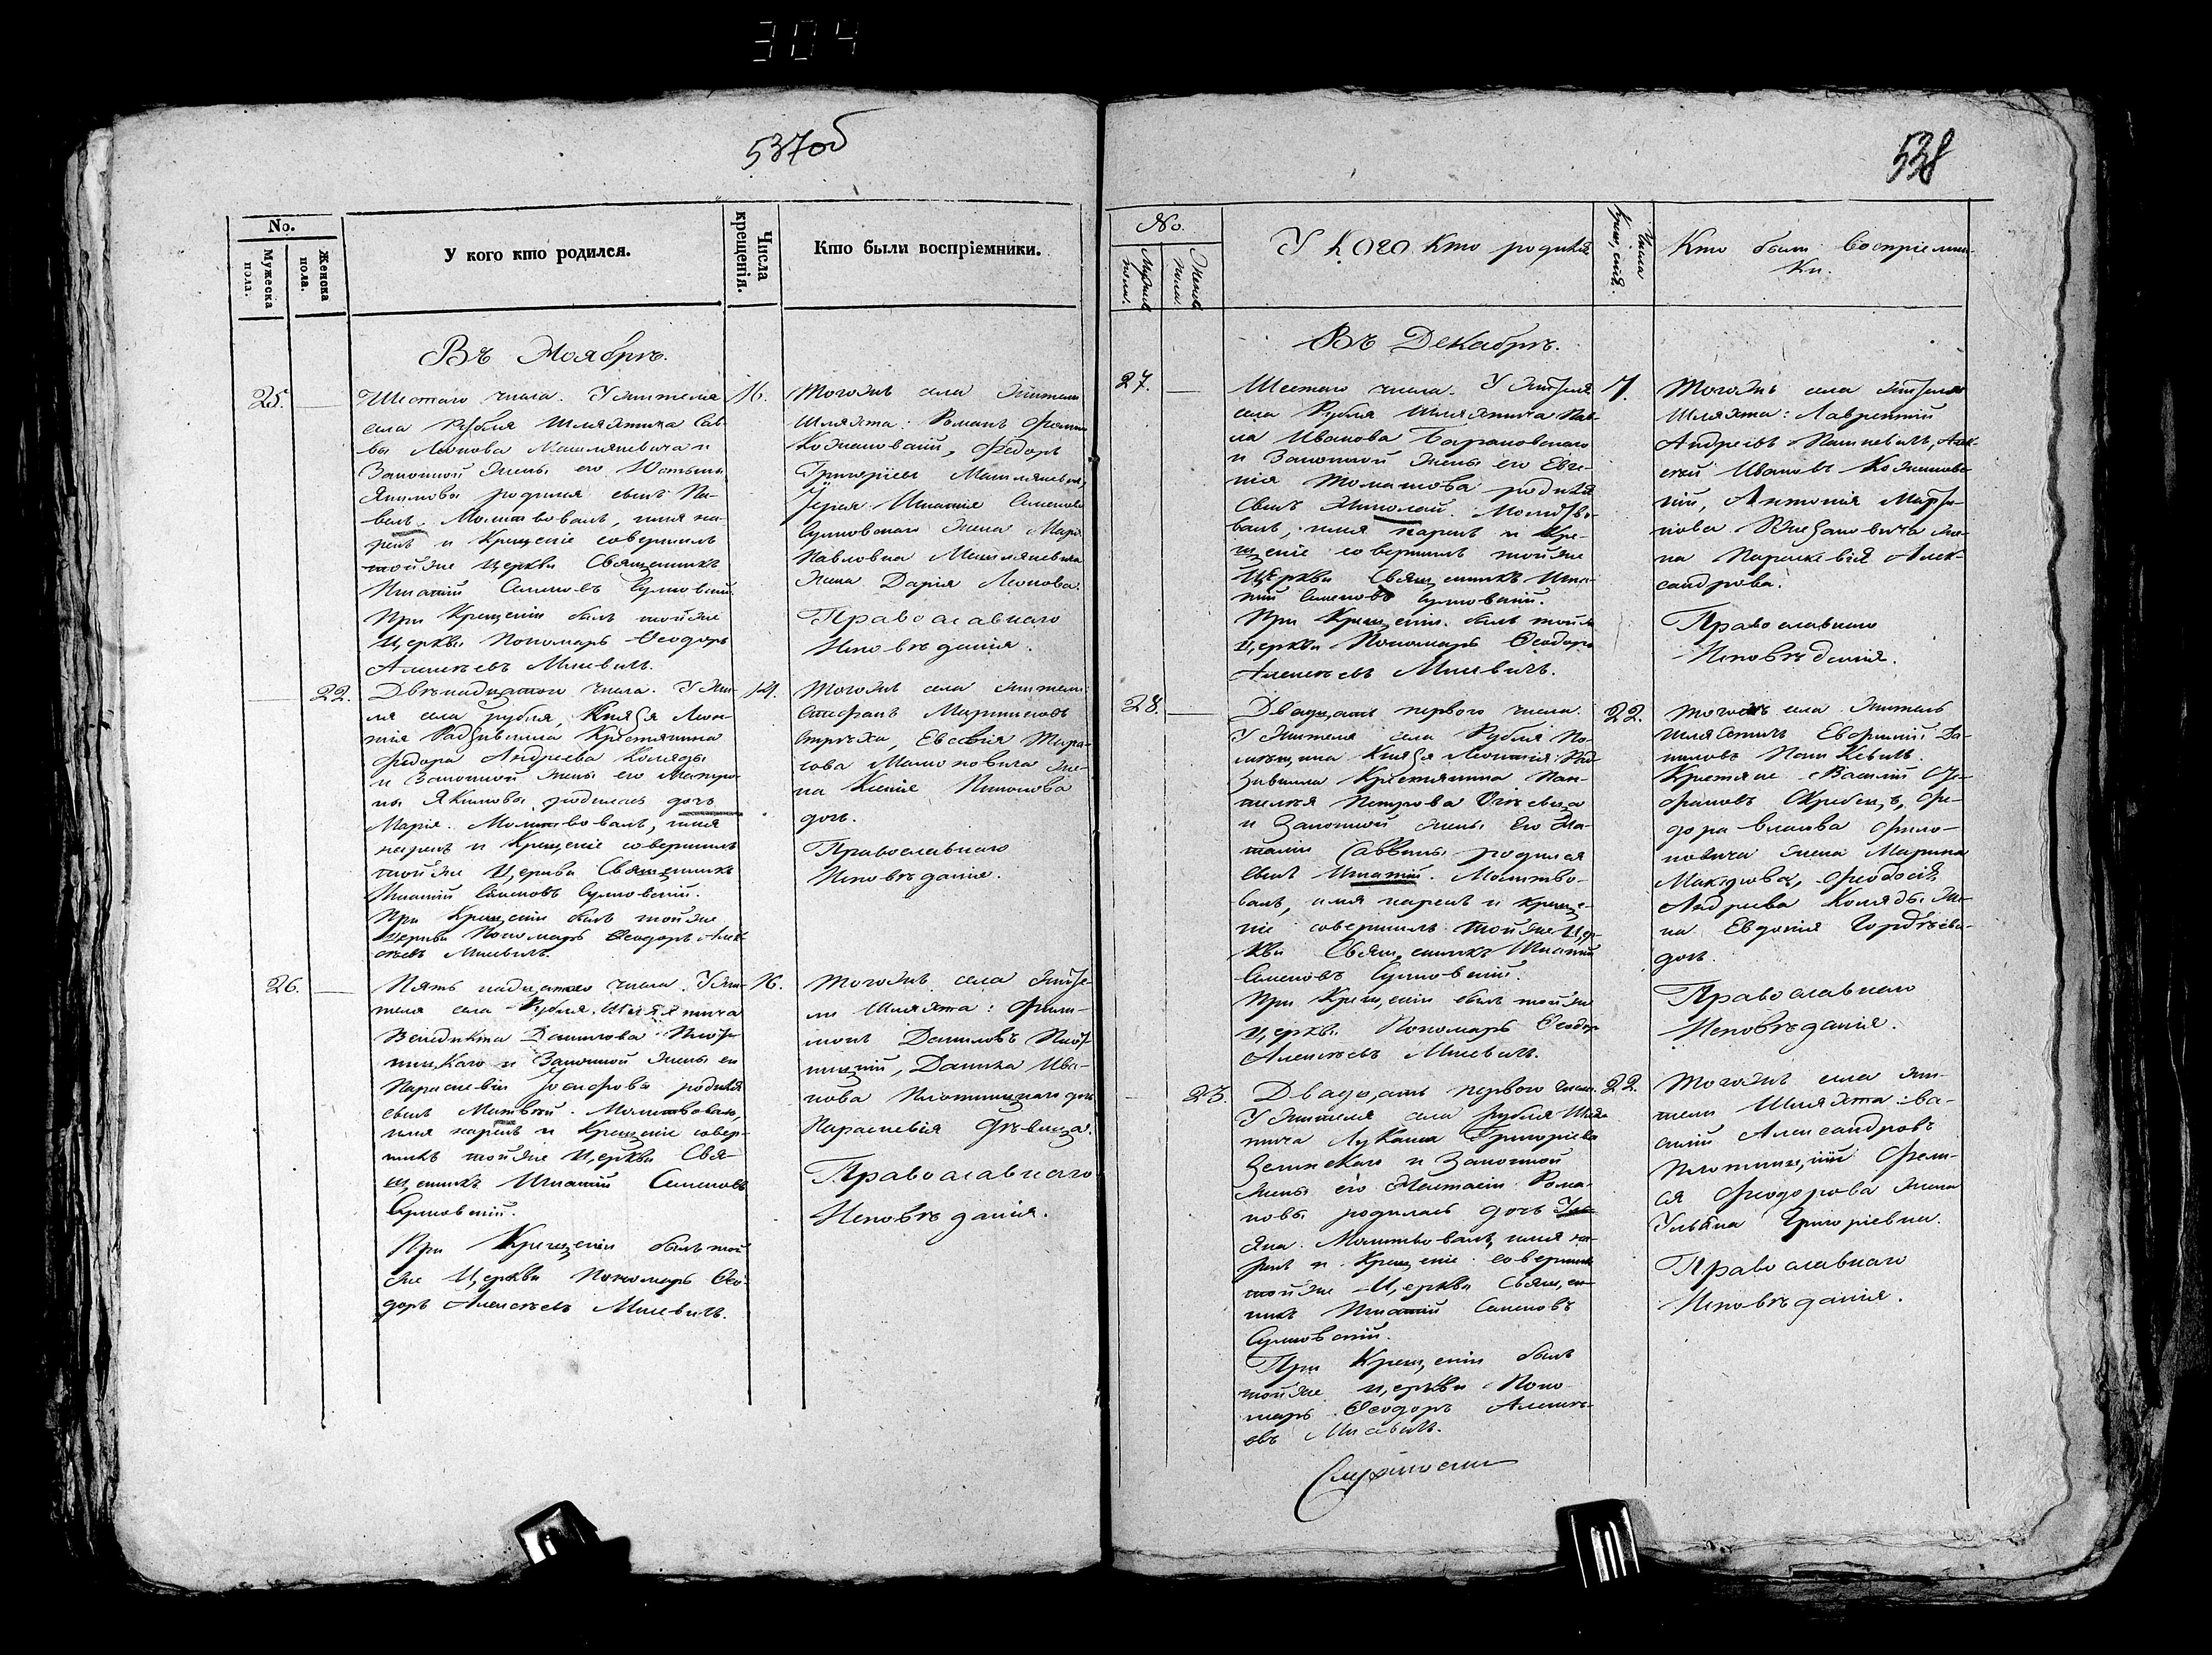 304
537об
No.
Мужеска пола.
Женска пола.
У кого кто родился.
Числа крещенія.
Кто были воспріемники.
Въ Ноябрѣ.
25.
Шестаго числа. У жителя
села Рубля Шляхтича Сав-
вы Леонова
Законной жены его Юстины
Якимовы родился сынъ Па-
велъ. Молитвовалъ, имя на-
рекъ и Крещеніе совершилъ
тойже Церкви Священникъ
Игнатій Семеновъ
При Крещеніи былъ тойже
Церкви Пономарь Ѳеодоръ
Алексѣевъ Мисевичъ.
11.
Тогожъ села жители
Шляхта: Романъ
Федоръ
Григоріевъ
Іерея Игнатія Семенова
жена Марія
Павловна
жена Дарія Леонова.
Православнаго
Исповѣданія.
22.
Двѣнадцатаго числа. У жи-
ля села Рубля, Князя Леон-
тія Радзивилла Крестьянина
Федора Андреева Коляды
и Законной жены его Матро-
ны Якимовы родилась дочь
Марія. Молитвовалъ, имя
нарекъ и Крещеніе совершилъ
тойже Церкви Священникъ
Игнатій Семеновъ
При Крещеніи былъ тойже
Церкви Пономарь Ѳеодоръ Алек-
сѣевъ Мисевичъ.
14.
Тогожъ села жители
Стефанъ Мартиновъ
Евсевія Тара-
сова же-
на Ксенія
дочь.
Православнаго
Исповѣданія.
26.
Пятьнадцатаго числа. У жи-
теля села Рубля Шляхтича
Венедикта Данилова Плот-
ницкаго и Законной жены его
Параскевіи Іосифовы родился
сынъ Матвѣй. Молитвовалъ,
имя нарекъ и Крещеніе совер-
шилъ тойже Церкви Свя-
щенникъ Игнатій Семеновъ
При Крещеніи былъ той
же Церкви Пономарь Ѳео-
доръ Алексѣевъ Мисевичъ.
16.
Тогожъ села жите-
ли Шляхта: Фили-
монъ Даниловъ Плот-
ницкій, Данила Ива-
нова Плотницкаго дочь
Параскевія Дѣвица.
Православнаго
Исповѣданія.
538
No.
Мужеска пола.
Женска пола.
У кого кто родился
Числа Крещенія.
Кто были Воспріемни-
ки.
Въ Декабрѣ.
27.
Шестаго числа. У жителя
села Рубля Шляхтича Пав-
ла Иванова Барановскаго
и Законной жены его Евге-
нія родился
сынъ Николай. Молитво-
валъ, имя нарекъ и Кре-
щеніе совершилъ тойже
Церкви Священникъ Игна-
тій Семеновъ
При Крещеніи былъ тойже
Церкви Пономарь Ѳеодоръ
Алексѣевъ Мисевичъ.
7.
Тогожъ села жители
Шляхта: Лаврентій
Андреевъ Пашкевичъ, Алек-
сѣй Ивановъ
Антонія Марти-
нова же-
на Параскевія Алек-
сандрова.
Православнаго
Исповѣданія.
28.
Двадцать перваго числа.
У жителя села Рубля По-
мѣщика Князя Леонтія Рад-
зивилла Крестьянина Пан-
телея Петрова
и Законной жены его На-
таліи Саввины родился
сынъ Игнатій. Молитво-
валъ, имя нарекъ и Креще-
ніе совершилъ тойже Цер-
кви Священникъ Игнатій
Семеновъ
При Крещеніи былъ тойже
Церкви Пономарь Ѳеодоръ
Алексѣевъ Мисевичъ.
22.
Тогожъ села житель
Шляхтичъ Евфимій Да-
ниловъ Пашкевичъ.
Крестьяне Василій Сте-
фановъ Скребецъ, Фе-
дора Власова Фило-
новича жена Марина
Макарова, Феодосія
Андреева Коляды же-
на Евдокія Гордѣева
дочь.
Православнаго
Исповѣданія.
23.
Двадцать перваго числа
У жителя села Рубля Шлях-
тича Лукаша Григоріева
и Законной
жены его Настасіи Рома-
новы родилась дочь Уль-
яна. Молитвовалъ, имя на-
рекъ и Крещеніе совершилъ
тойже Церкви Священ-
никъ Игнатій Семеновъ
При Крещеніи былъ
тойже Церкви Поно-
марь Ѳеодоръ Алексѣ-
евъ Мисевичъ.
22.
Тогожъ села жи-
тели Шляхта: Ва-
силій Александровъ
Плотницкій
Феодорова жена
Ульяна Григоріевна.
Православнаго
Исповѣданія.